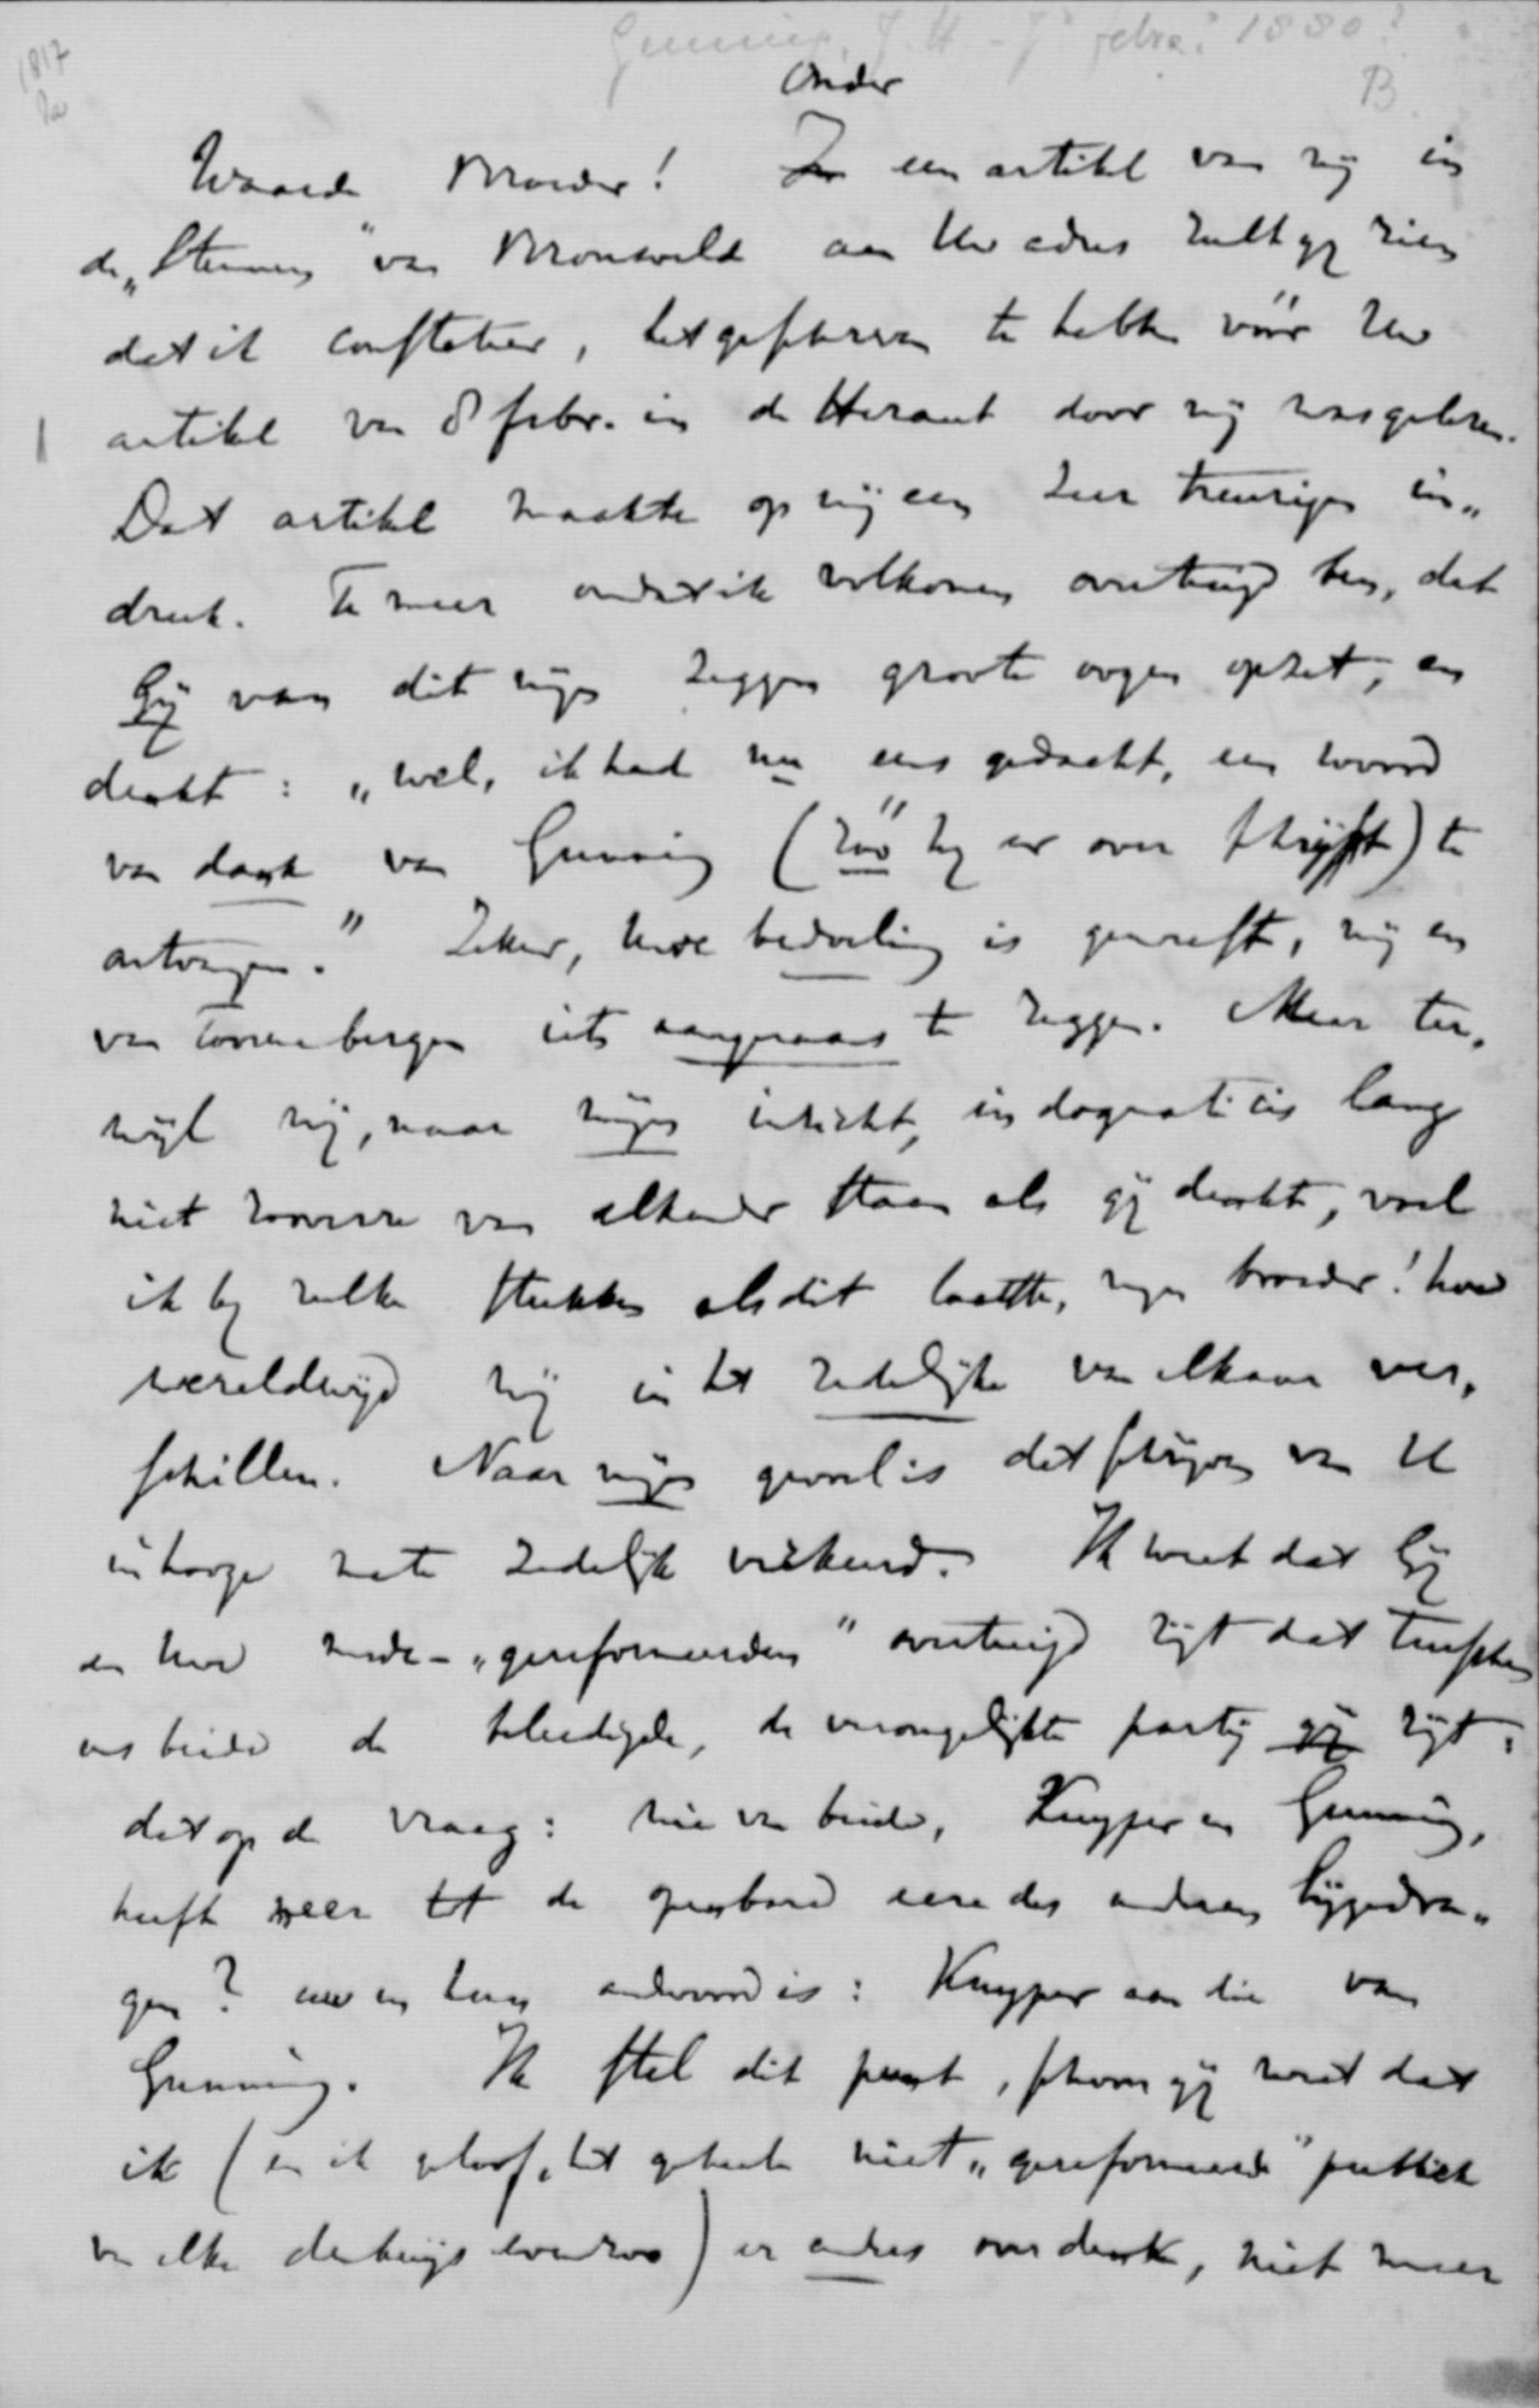 Gunning, J.H. - Jr febr? 1880?
1817
B
Onder
Waarde Broeder! In een artikel van mij in
de „Stemmen" van Bronsveld aan Uw adres zult gij zien
dat ik constateer, het geschreven te hebben vóór Uw
artikel van 8 febr. in de Heraut door mij was gelezen.
Dat artikel maakte op mij een zeer treurigen in„
druk. Te meer omdat ik volkomen overtuigd ben, dat
Gij van dit mijn zeggen groote oogen opzet, en
denkt: „wel, ik had nu eens gedacht, een woord
van dank van Gunning (zóó hij er over schrijft) te
ontvangen." Zeker, Uwe bedoeling is geweest, mij en
van Toorenenbergen iets aangenaams te zeggen. Maar ter„
wijl wij, naar mijn inzicht, in dogmaticis lang
niet zoo verre van elkander staan als gij denkt, voel
ik bij zulke stukken als dit laatste, mijn broeder! hoe
wereldwijd wij in het zedelijke van elkaar ver„
schillen. Naar mijn gevoel is dit schrijven van U
in hooge mate zedelijk krenkend. Ik weet dat Gij
en Uwe mede-„gereformeerden" overtuigd zijt dat tusschen
ons beide de beleedigde, de verongelijkte partij gij zijt:
dat op de vraag: wie van beide, Kuyper en Gunning,
heeft meer tot de openbare eere des anderen bijgedra„
gen? uw en hun antwoord is: Kuyper aan die van
Gunning. Ik stel dit punt, schoon gij weet dat
ik (en ik geloof, het geheele niet „gereformeerde" publiek
van elke denkwijs evenzoo) er anders over denk, niet meer